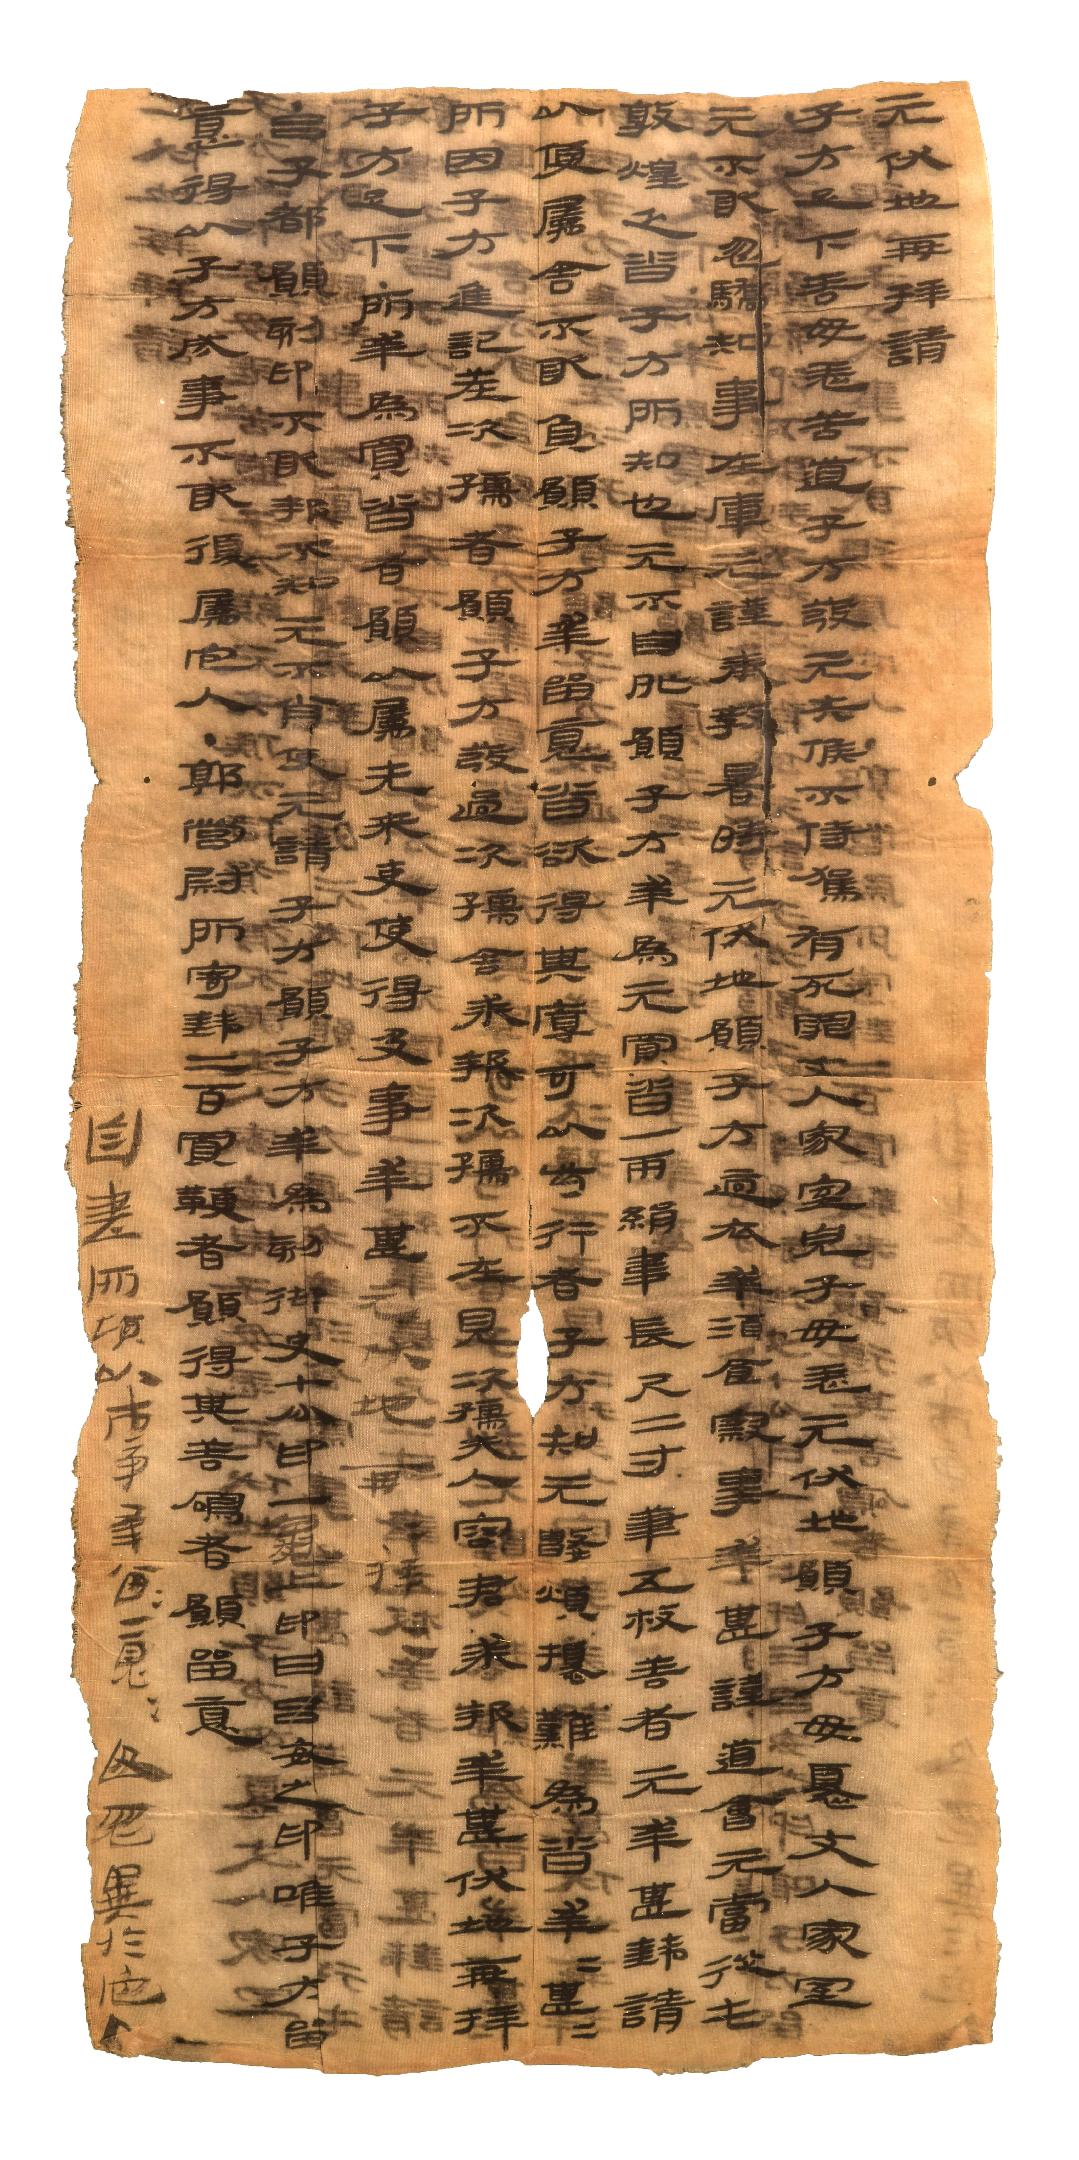 元伏地再拜請
子方足下善毋恙苦道子方發元失候不侍駕有死罪丈人家室兒子毋恙元伏地願子方毋憂丈人家室
元不敢忽驕知事在庫元謹奉教暑時元伏地願子方適衣幸酒食察事幸甚謹道會元當從屯
敦煌乏沓子方所知也元不自外願子方幸為元買沓一兩絹韋長尺二寸筆五枚善者元幸甚錢請
以便屬舍不敢負願子方幸留意沓欲得其厚可以步行者子方知元數煩擾難為沓幸〻甚〻
所因子方進記差次孺者願子方發過次孺舍求報次孺不在見次孺夫人容君求報幸甚伏地再拜
子方足下●所幸為買沓者願以屬先來吏使得及事幸甚元伏地再拜〻
●呂子都願刻印不敢報不知元不肖使元請子方願子方幸為刻御史七分印一龜上印曰呂安之印唯子方留
意得以子方成事不敢復屬它人●郭營尉所寄錢二百買鞭者願得其善鳴者願留意
自書所願以市事幸留〻意〻毋忽異於它人